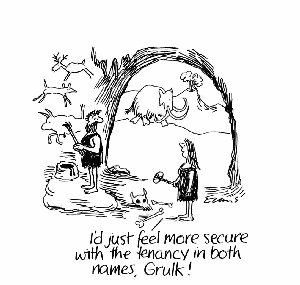 I'd just feel more secure
with the tenancy in both
names, Grulk!